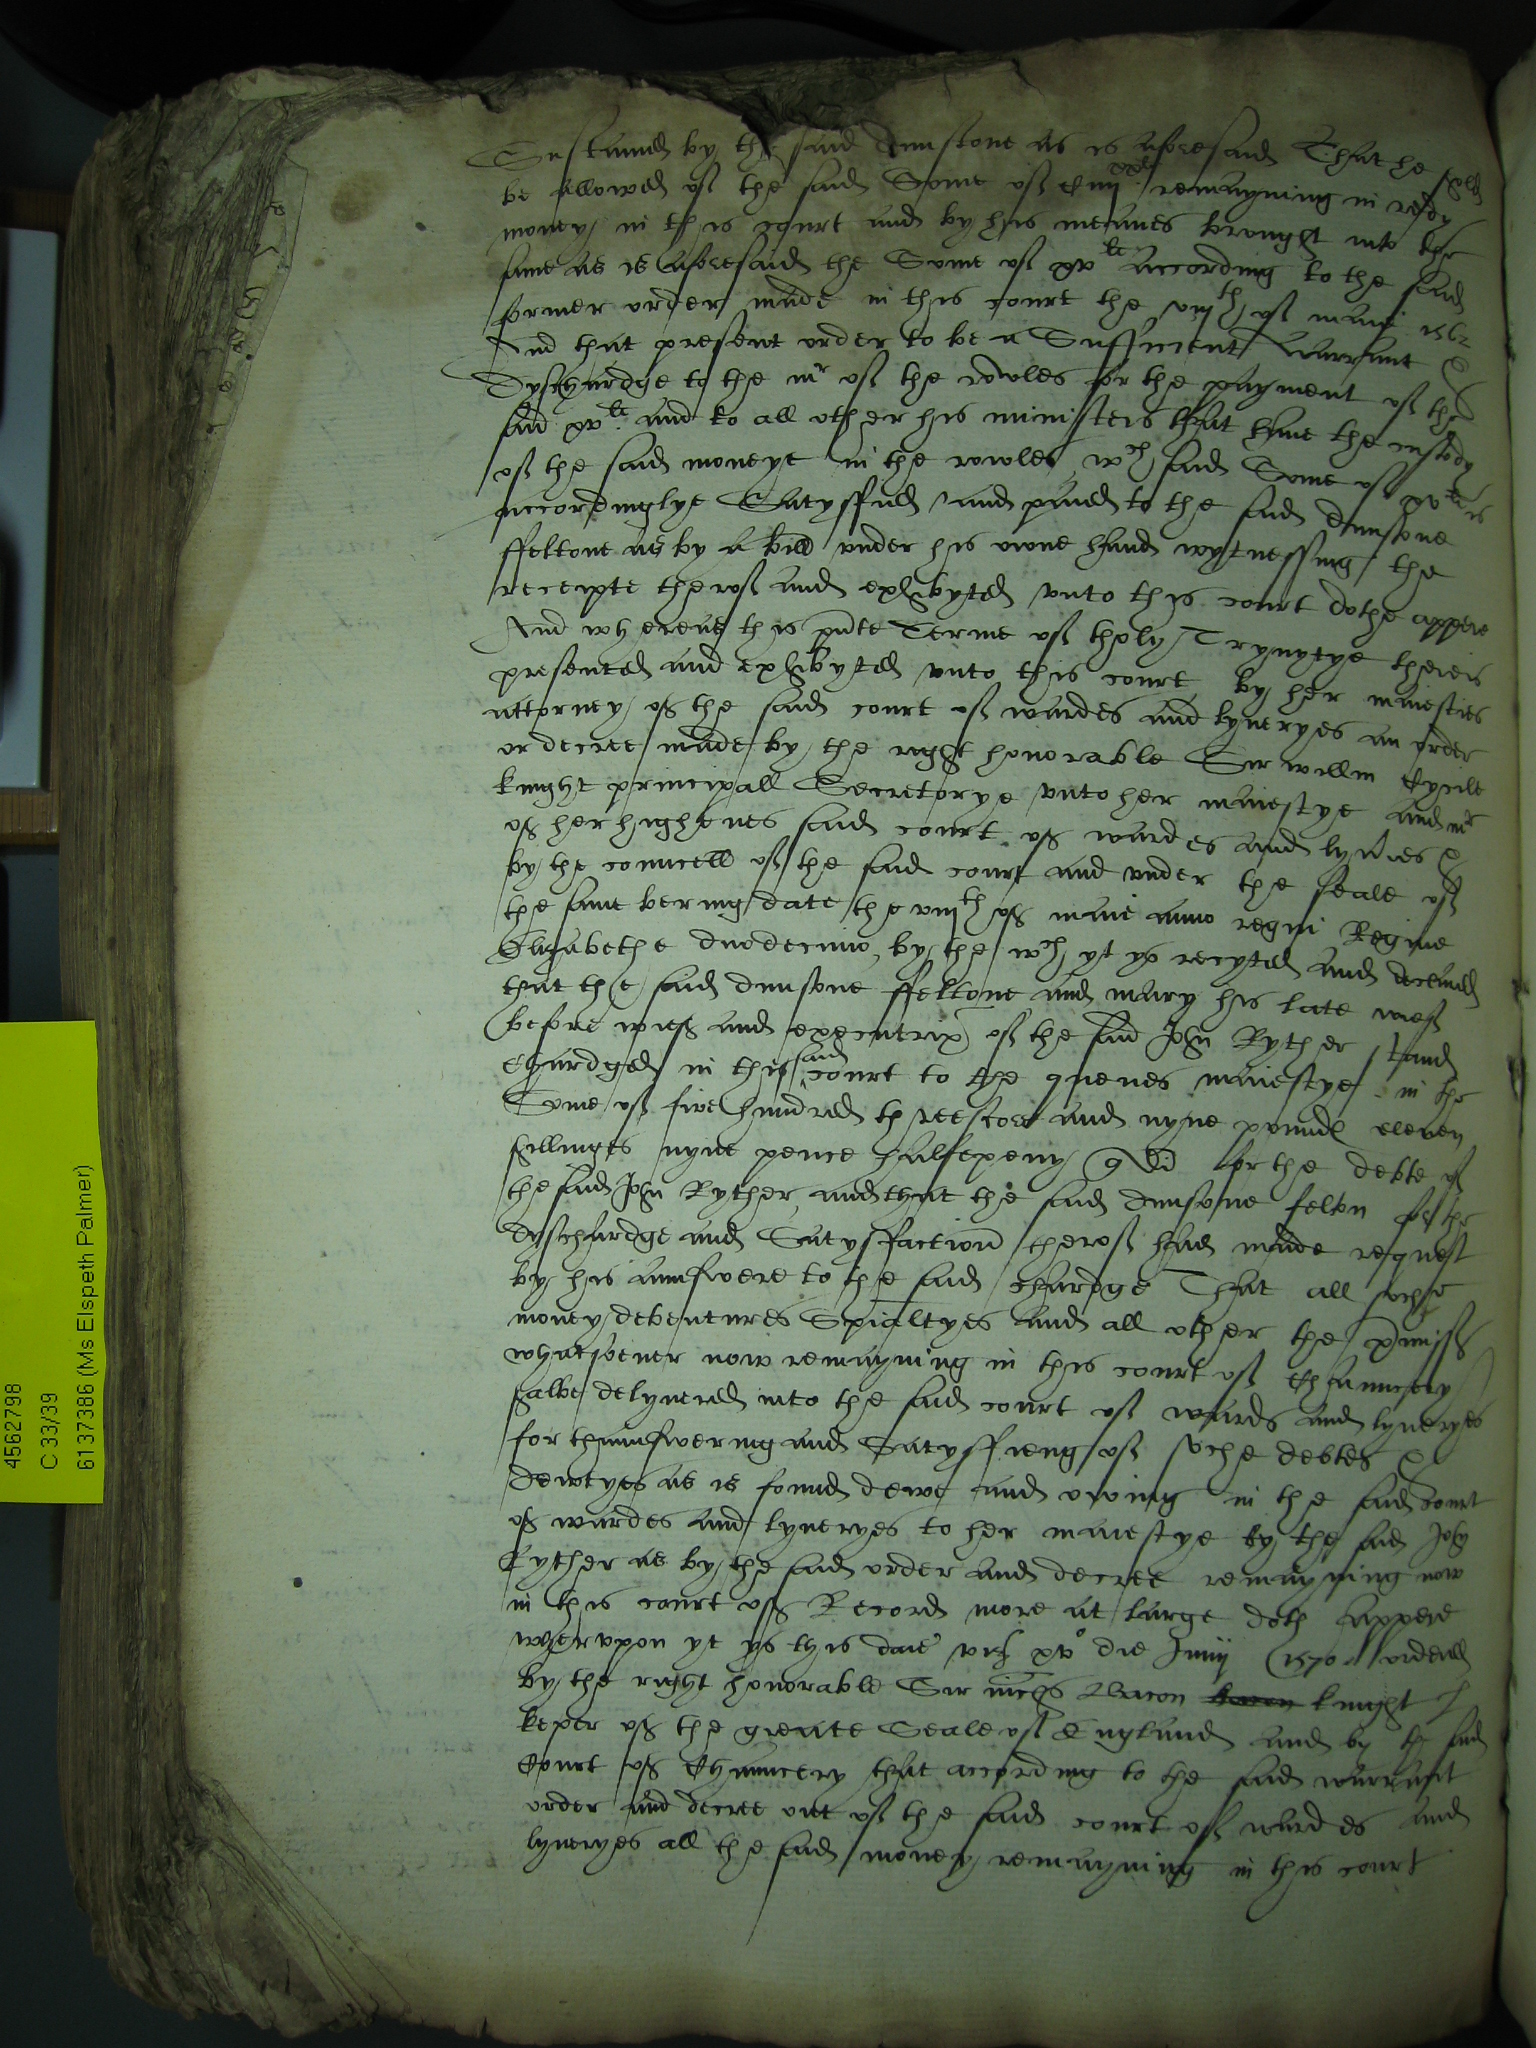 Sustained by the said dunstone as is aforesaid That he shold
be allowed of the said Some of remayning in redy
money in this court and by his meanes brought into the
same as is aforesaid the Some of xv li according to the said
former order made in this court the viijth of maie 1562
And that present order to be a Sufficient warrant &
dyschardge to the mr of the rowles for the payment of the
said xv li and to all other his ministers that have the custody
of the said moneye in the rowles wch said Some of xv li is
accordinglye Satysfied and paied to the said dunstone
ffeltone as by a bill under his owne hand wytnessing the
receipte therof and exhibyted unto this court dothe appere
And whereas this pnte Terme of tholy Trynytye there is
presented and exhibyted unto this court by her maiesties
attorney of the said court of wardes and lyveryes an order
or decree made by the right honorable Sir willm Cycile
knight principall Secretorye unto her maiestye and mr
of her highenes said court of wardes and lyv'ies &
by the councell of the said court and under the seale of
the same bering date the viijth of maie anno regni Regine
Elizabethe duodecimo by the wch yt ys recyted and declared
that the said dunstone ffeltone and mary his late wief
before wief and executrix of the said John Ryther stand
Chardged in this said court to the quenes maiestye in the
Some of five hundred threescore and nyne poundes eleven
shillinges nyne pence halfepeny for the debte of
the said John Ryther and that the said dunstone felton for the
dyschardge and Satysfaction therof had made request
by his aunswere to the said chardge That all suche
money debentures Spialtyes and all other the p'misses
whatsoever now remayning in this court of Chauncery
shalbe delyvered into the said court of wards and lyveryes
for thaunswering and Satysffieng of suche debtes &
dewtyes as is found dewe and owing in the said court
of wardes and lyveryes to her maiestye by the said John
Ryther as by the said order and decree remayning now
in this court of Record more at large doth appere
wherupon yt ys this daie viz xvo die Junij 1570 ordered
by the right honorable Sir nichas Bacon knight L
keper of the greate Seale of England and by the said
Court of Chauncery that according to the said warrant
order and decree out of the said court of wardes and
lyveryes all the said money remayning in this court
4562798
C 33/39
6137386 (Ms Elspeth Palmer)